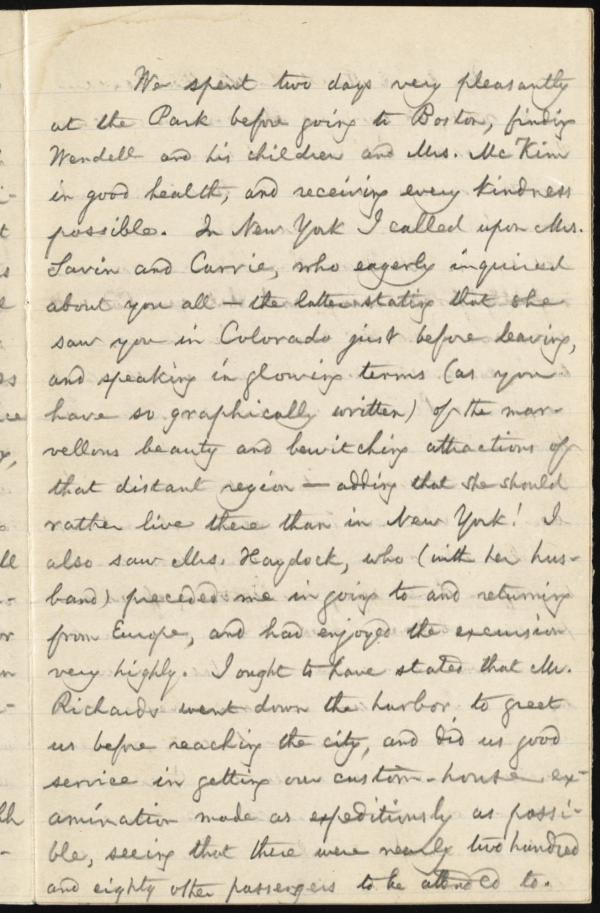 We spent two days very pleasantly
at the Park before going to Boston, finding
Wendell and his children and Mrs. McKim
in good health, and receiving every kindness
possible. In New York I called upon Mrs.
Savin and Carrie, who eagerly inquired
about you all — the latter stating that she
saw you in Colorado just before leaving,
and speaking in glowing terms (as you
have so graphically written) of the mar-
vellous beauty and bewitching attractions of
that distant region — adding that she should
rather live there than in New York! I
also saw Mrs. Haydock, who (with her hus-
band) preceded me in going to and returning
from Europe, and had enjoyed the excursion
very highly. I ought to have stated that Mr.
Richards went down the harbor to greet
us before reaching the city, and did us good
service in getting our custom-house ex-
amination made as expeditiously as possi-
ble, seeing that there were nearly two hundred
and eighty other passengers to be attended to.